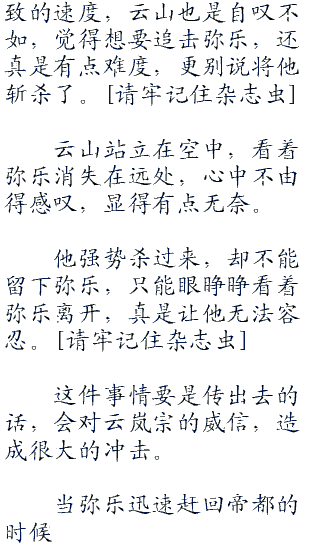 致的速度，云山也是自叹不
如，觉得想要追击弥乐，还
真是有点难度，更别说将他
斩杀了。[请牢记住杂志虫]
云山站立在空中，看着
弥乐消失在远处，心中不由
得感叹，显得有点无奈。
他强势杀过来，却不能
留下弥乐，只能眼睁睁看着
弥乐离开，真是让他无法容
忍。[请牢记住杂志虫]
这件事情要是传出去的
话，会对云岚宗的威信，造
成很大的冲击。
当弥乐迅速赶回帝都的
时候